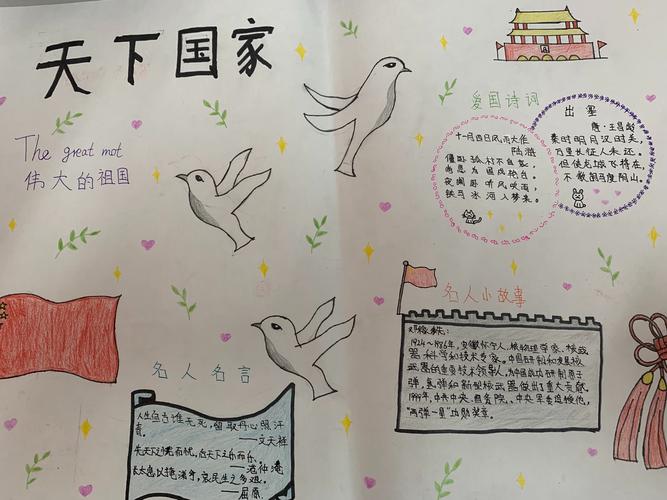 天下国家
The great mot
伟大的祖国
爱国诗词
十一月四日风雨大作
陆游
僵卧孤村不自哀,
尚思为国戍轮台。
夜阑卧听风吹雨,
铁马冰河入梦来。
出塞
唐·王昌龄
秦时明月汉时关,
万里长征人未还。
但使龙城飞将在,
不教胡马度阴山。
名人小故事
邓稼先:
1924~1986年,安徽怀宁人,核物理学家、核武
器科学和技术专家。中国研制和发展核
武器的重要技术领导人,为中国成功研制原子
弹、氢弹和新型核武器做出了重大贡献。
1999年,中共中央、国务院、中央军委追授他,
“两弹一星”功勋奖章。
名人名言
人生自古谁无死,留取丹心照汗
青。
——文天祥
先天下之忧而忧,后天下之乐而乐。
太太息以掩涕兮,哀民生之多艰。
——屈原